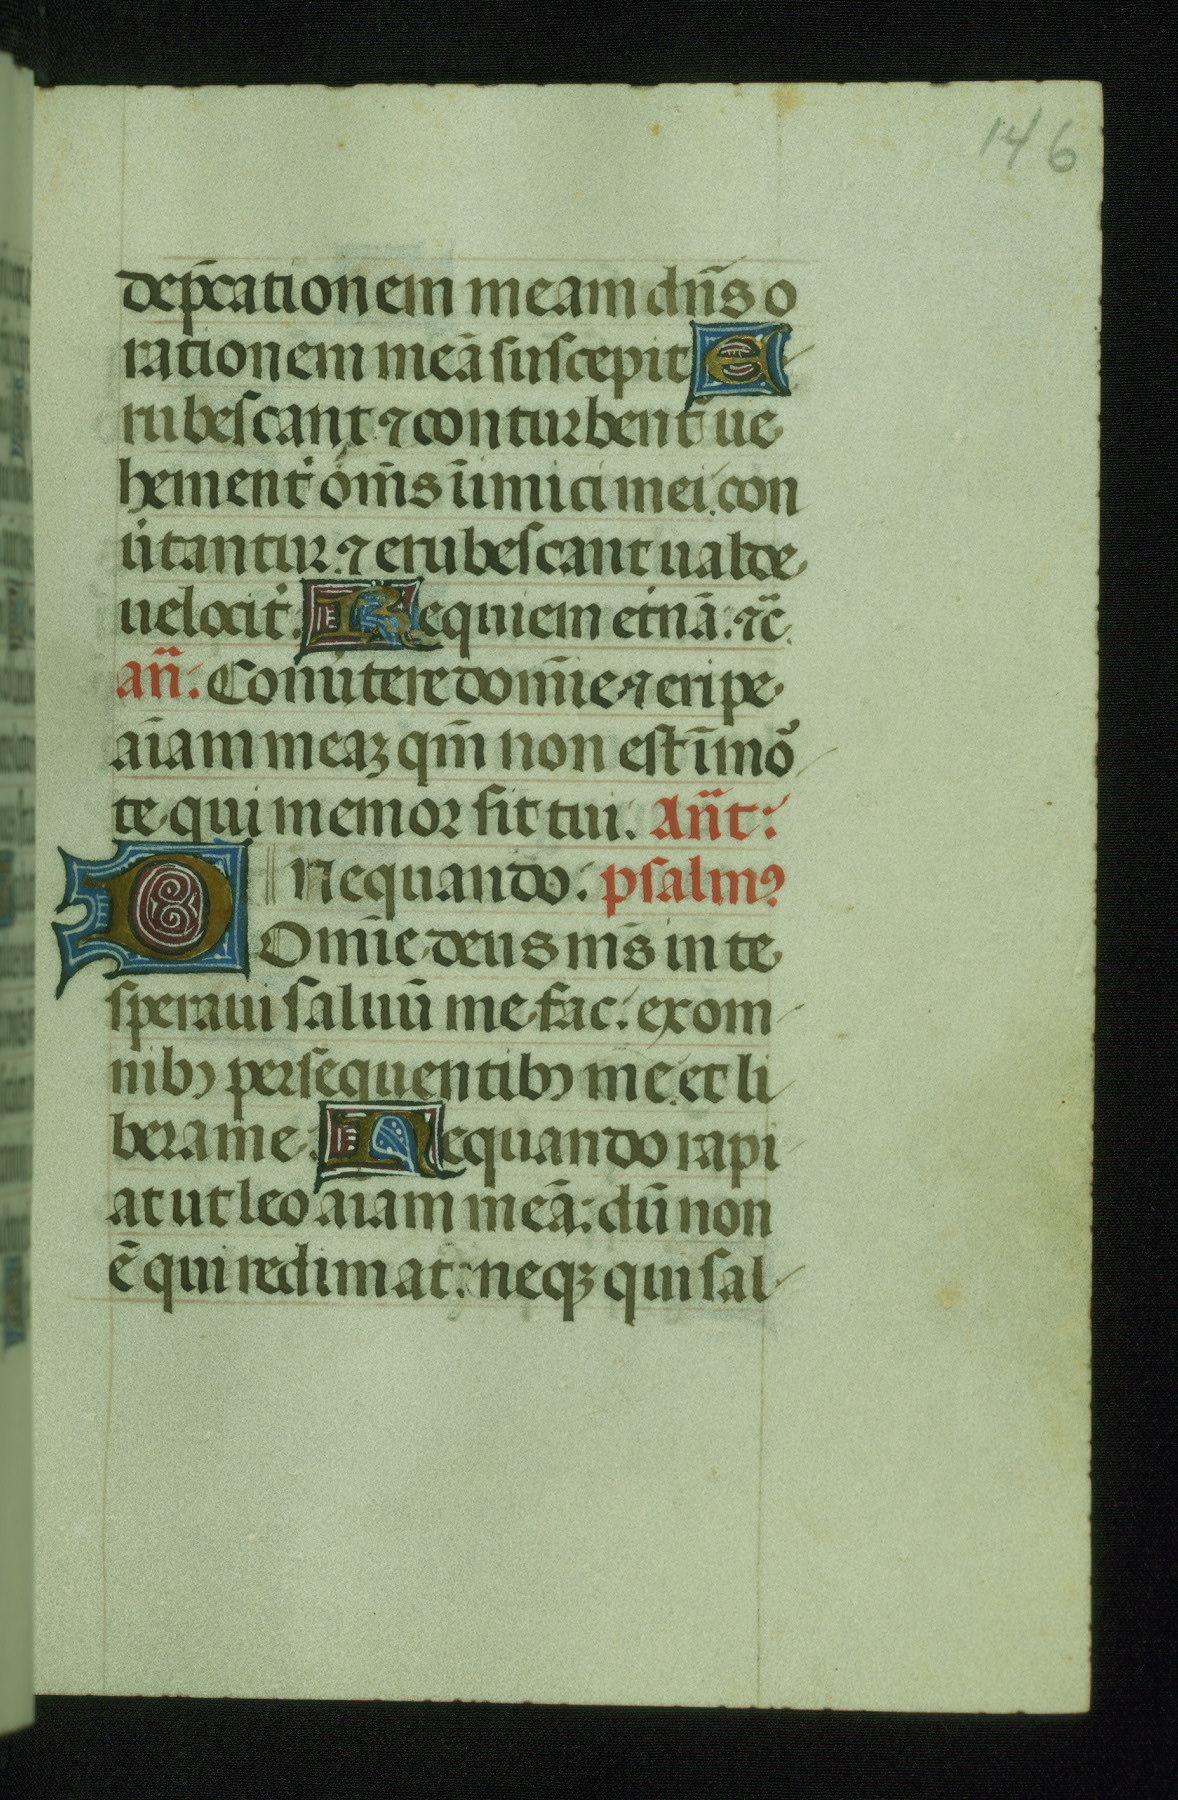 146
dep̄cationem meam dn̄s o
rationem meā suscepit E
rubescant ⁊ conturbent̄ ue
hement̉ om̄s īimici mei. con
ūtantur. ⁊ erubescant ualde
uelocit̉. Requiem et̉nā. ⁊c̄.
an̄. Conūtere domīe ⁊ eripe
aīam meaꝫ qm̄ non est ī mo
te qui memor sit tui. An̄t:
Nequando. psalmꝰ
Domīe deus ms̄ in te
speraui saluū me fac. ex om
nibꝫ persēquentibꝫ me. et li
bera me: Nequando rapi
at ut leo aīam meā: dū non
ē qui redimat: neqꝫ qui sal